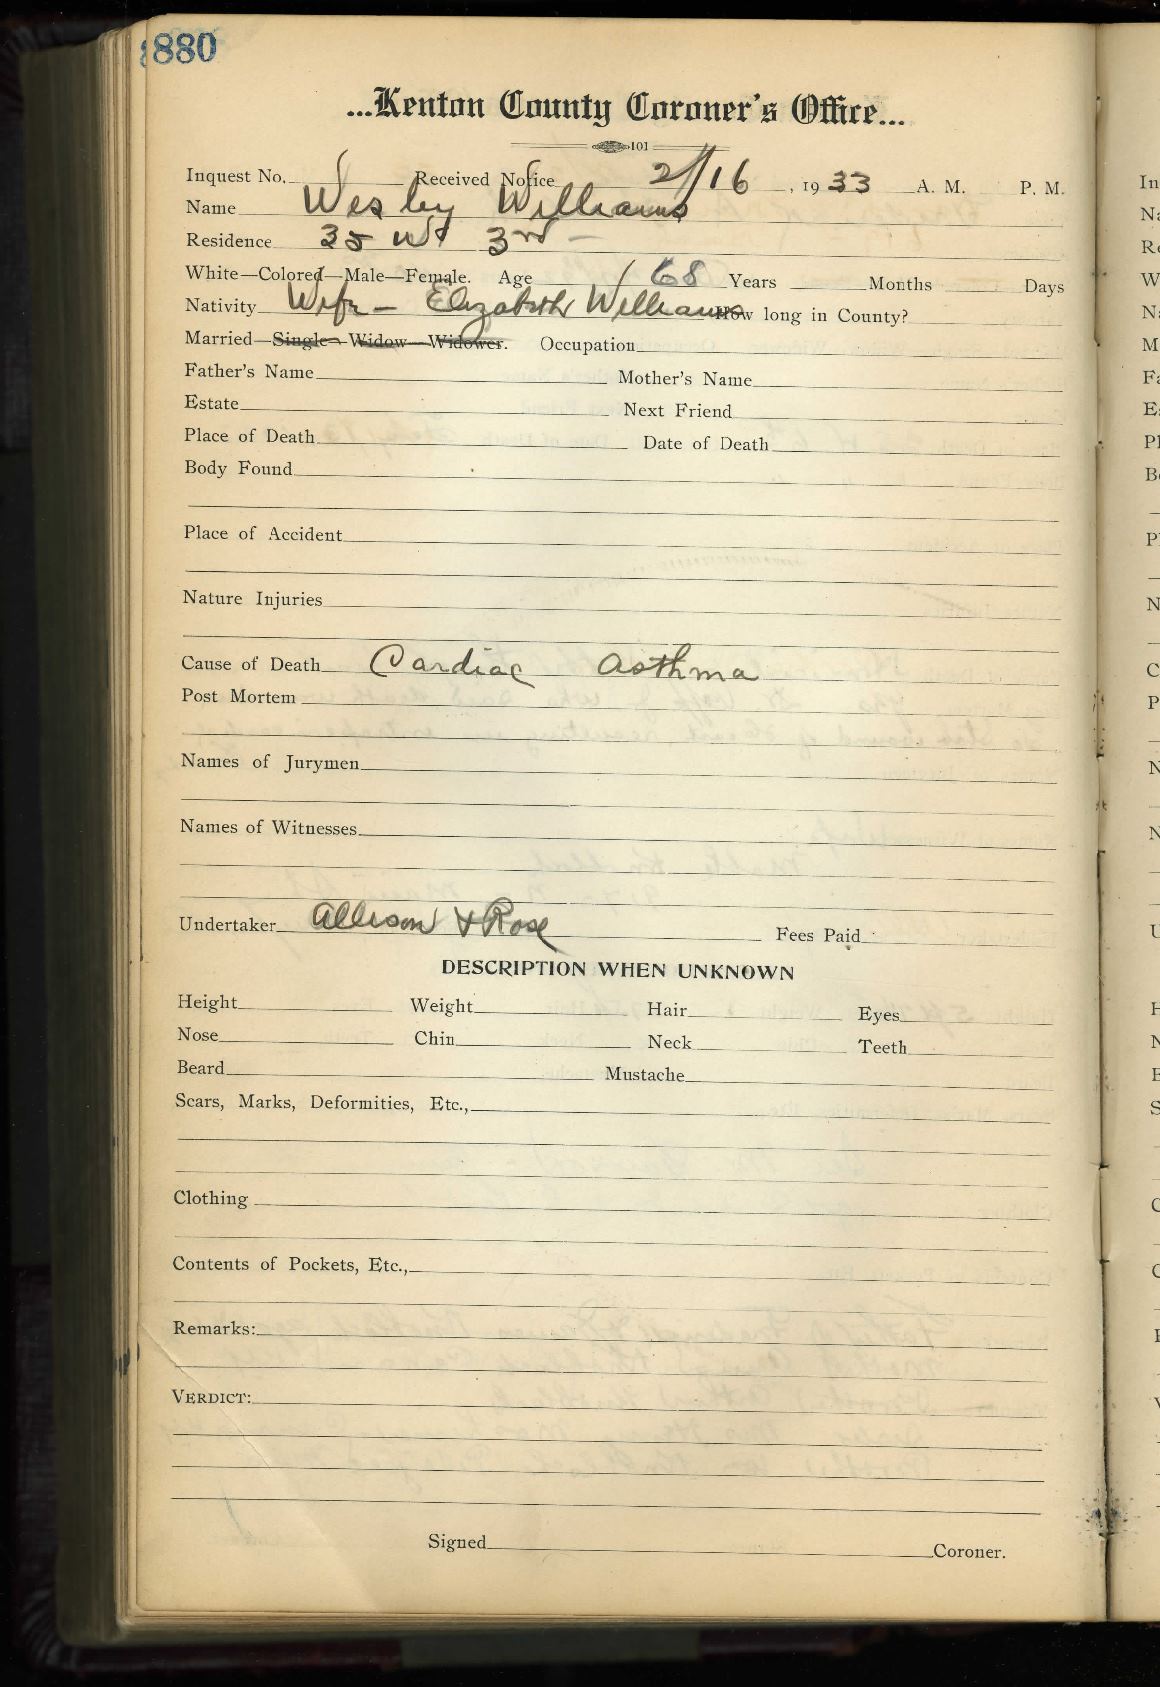 880
...Kenton County Coroner's Office...
101
Inquest No. Received Notice 2/16, 1933 A. M. P. M.
Name Wesley Williams
Residence 35 Wt 3rd -
White—Colored—Male—Female. Age 68 Years Months Days
Nativity Wife - Elizabeth Williams How long in County?
Married—Single—Widow—Widower. Occupation
Father's Name Mother's Name
Estate Next Friend
Place of Death Date of Death
Body Found
Place of Accident
Nature Injuries
Cause of Death Cardiac Asthma
Post Mortem
Names of Jurymen
Names of Witnesses
Undertaker Allison & Rose Fees Paid
DESCRIPTION WHEN UNKNOWN
Height Weight Hair Eyes
Nose Chin Neck Teeth
Beard Mustache
Scars, Marks, Deformities, Etc.,
Clothing
Contents of Pockets, Etc.,
Remarks:
VERDICT:
Signed Coroner.